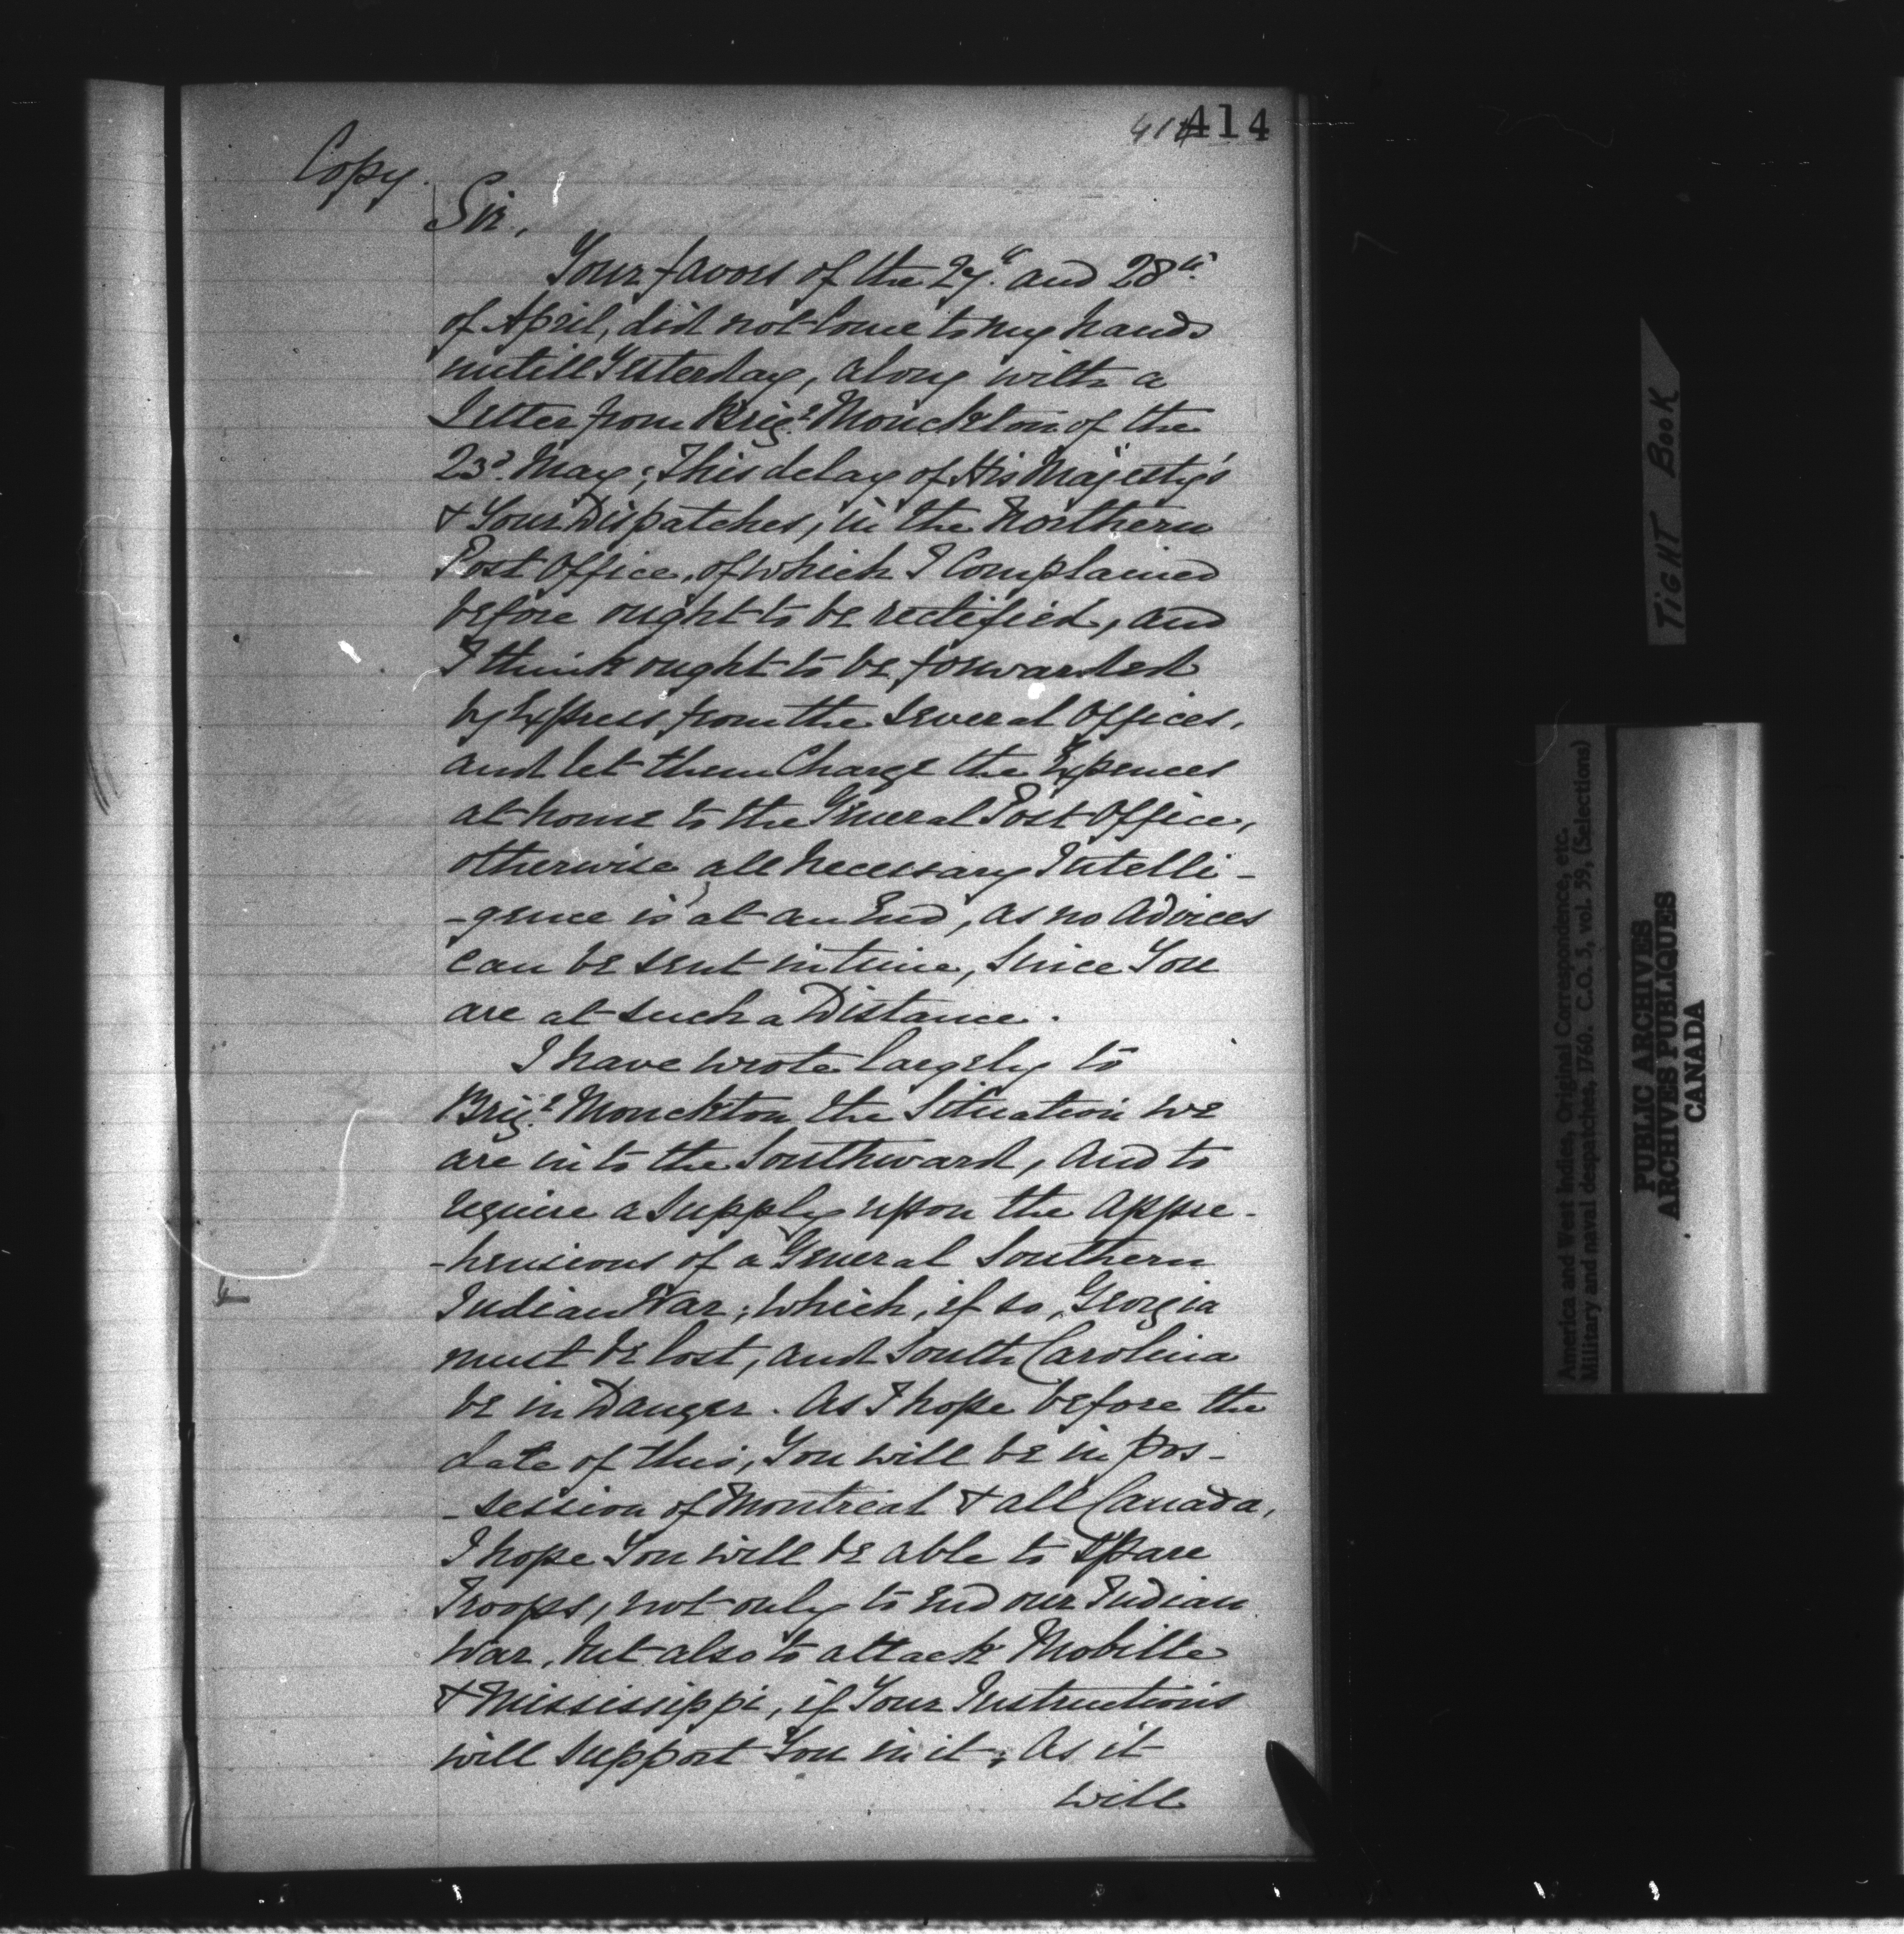 414 414
Copy.
Sir,
Your favors of the 27th. and 28th.
of April, did not come to my hands
untill Yesterday, along with a
Letter from Brigr. Monckton of the
23d. May; This delay of His Majesty's
& Your Dispatches, in the Northern
Post Office, of which I Complained
before ought to be rectified, and
I think ought to be forwarded
by Express from the several Offices,
and let them Charge the Expences
at home to the General Post Office,
otherwise all necessary Intelli-
-gence is at an End, as no advices
can be sent in time, since You
are at such a Distance.
I have wrote largely to
Brigr. Monckton the Situation we
are in to the Southward, and to
require a Supply upon the Appre-
-hensions of a General Southern
Indian War; which, if so, Georgia
must be lost, and South Carolina
be in Danger. As I hope before the
date of this, You will be in pos-
-session of Montreal & all Canada,
I hope You will be able to spare
Troops, not only to end our Indian
War, but also to attack Mobille
& Mississippi, if Your Instructions
will support You in it; As it
will
TIGHT BOOK
America and West Indies, Original Correspondence, etc.
Military and naval despatches, 1760. C.O. 5, vol. 59, (Selections)
PUBLIC ARCHIVES
ARCHIVES PUBLIQUES
CANADA